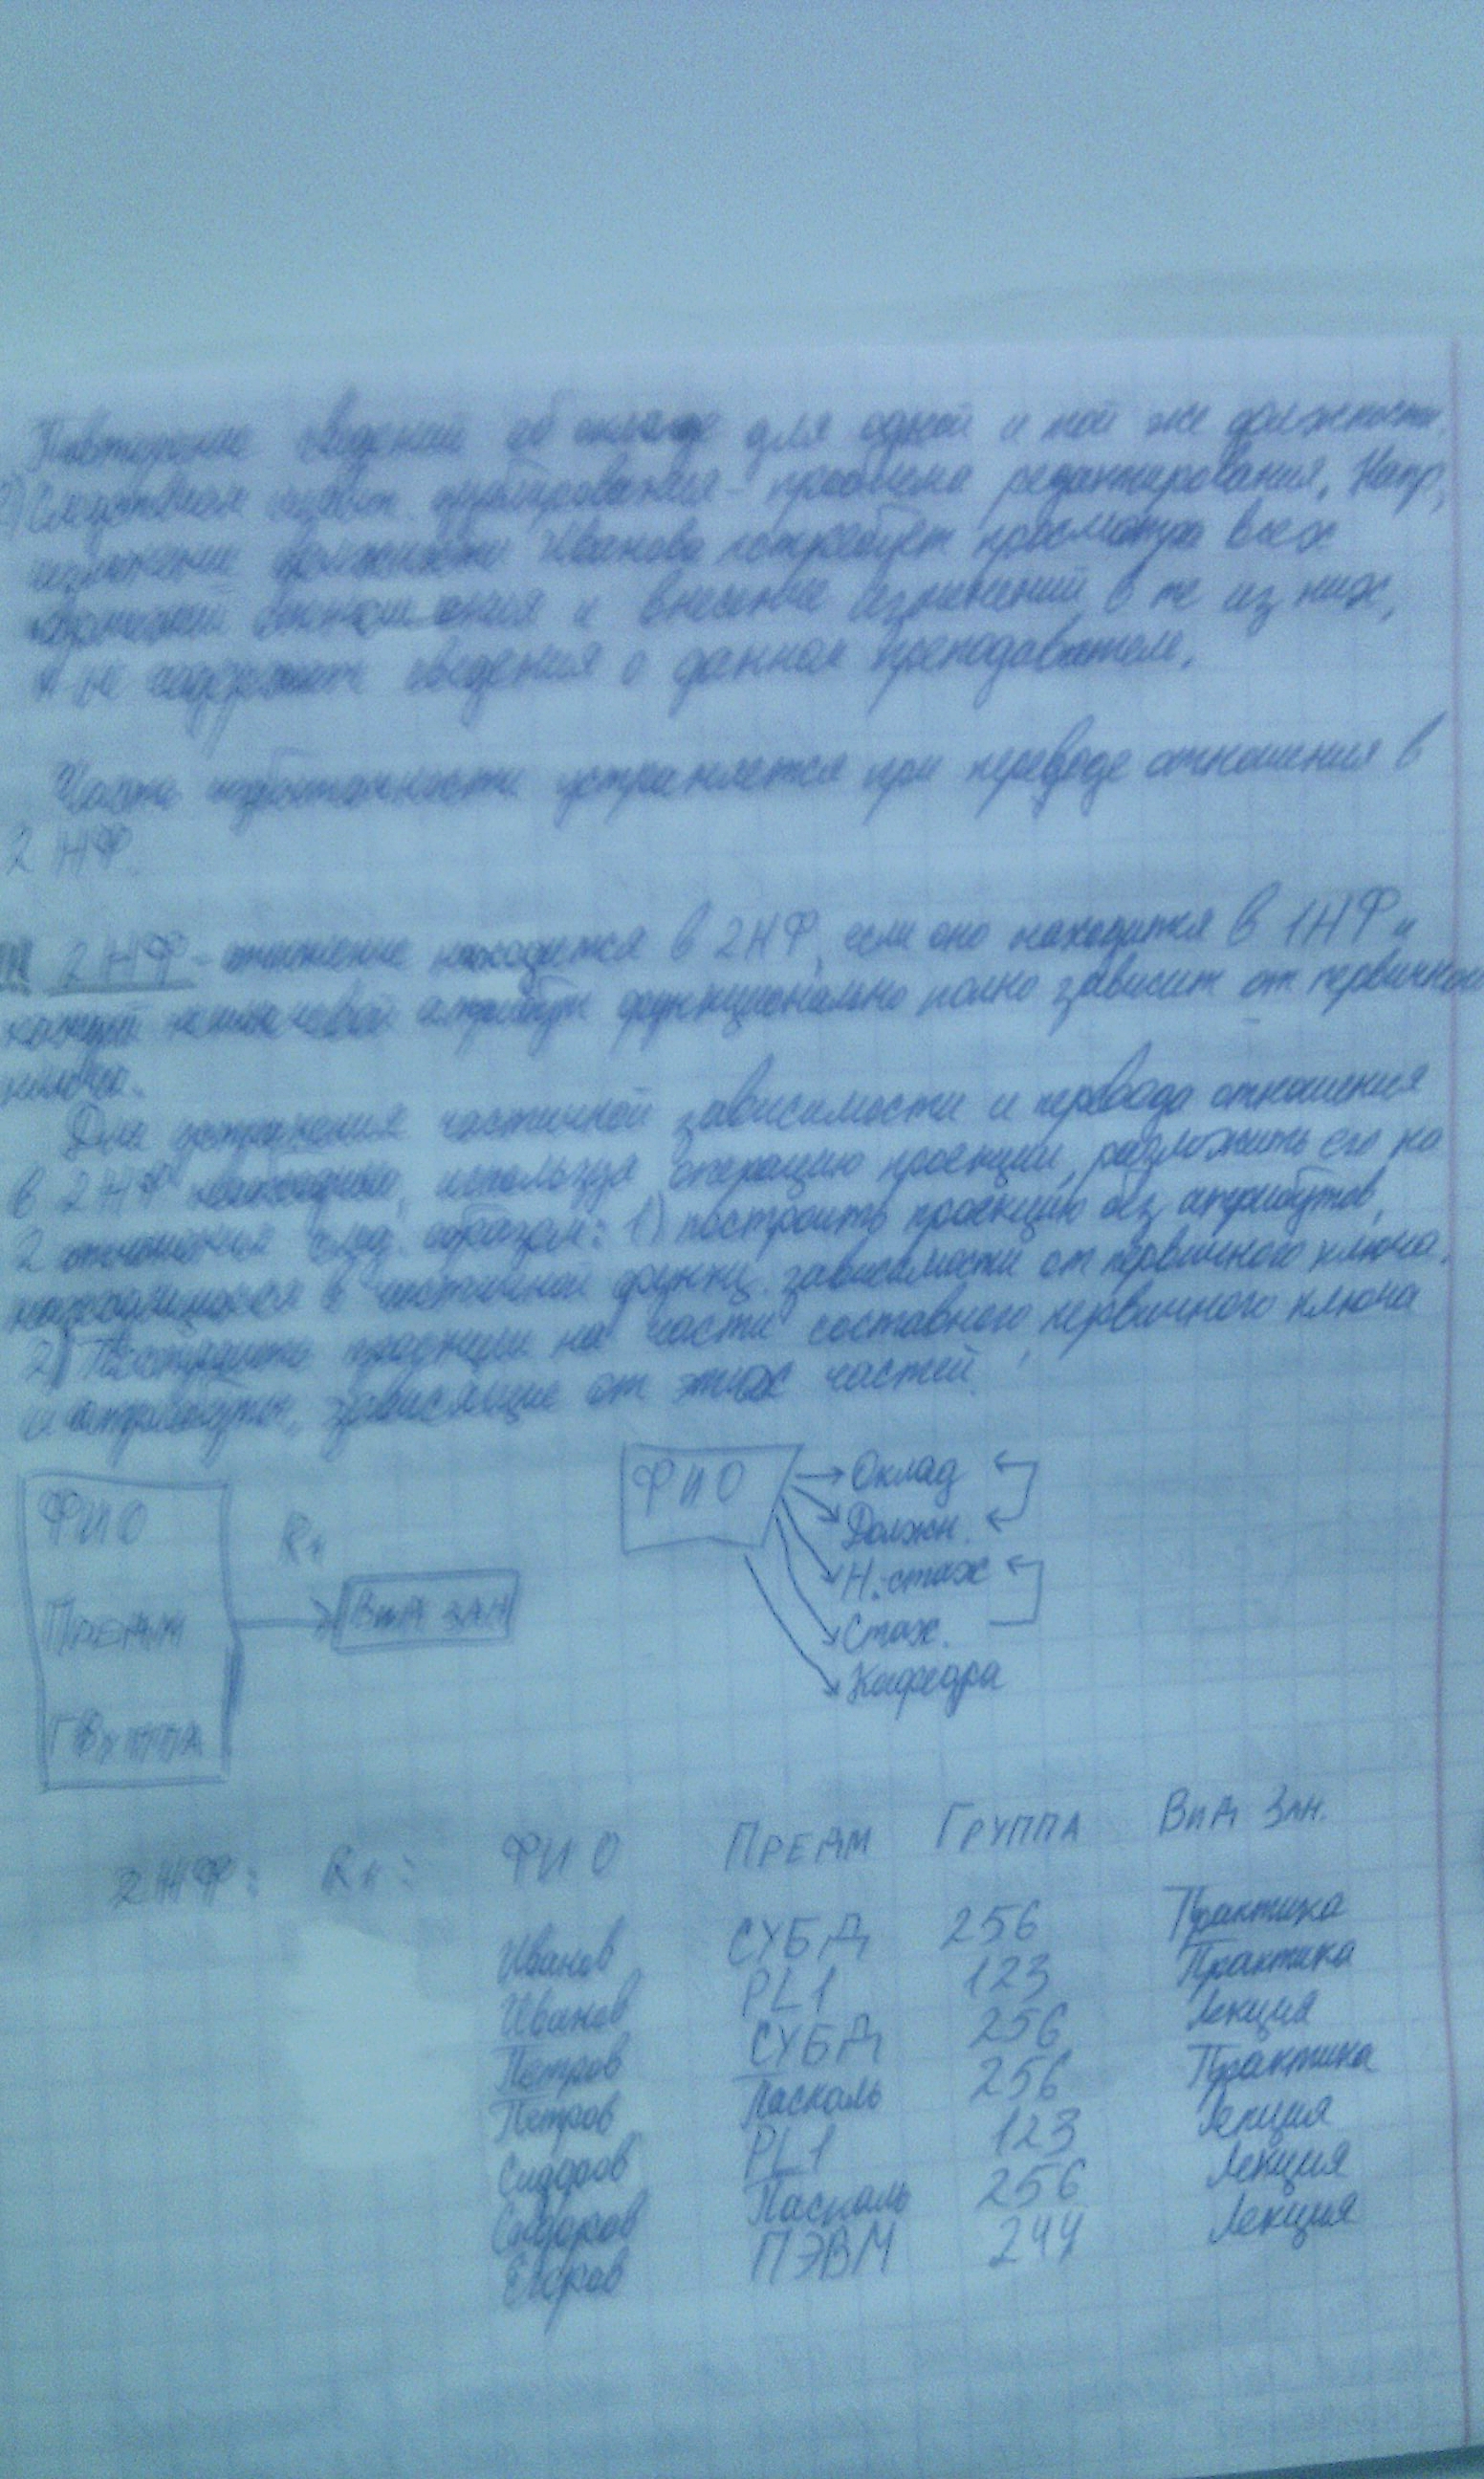 Повторение сведений об окладе для одной и той же должности.
Следствием избыт. дублирования - проблема редактирования. Напр,
изменение должности Иванова потребует просмотра всех
и внесение изменений в те из них,
содержат сведения о данном преподавателе.
Часть избыточности устраняется при переводе отношения в
2 НФ.
2 НФ - отношение находится в 2НФ, если оно находится в 1НФ и
каждый неключевой атрибут функционально полно зависит от первичного
ключа.
Для устранения частичной зависимости и перевода отношения
в 2НФ необходимо, используя операцию проекции, разложить его на
2 отношения след. образом: 1) построить проекцию без атрибутов,
находящихся в частичной функц. зависимости от первичного ключа.
2) Построить проекции на части составного первичного ключа
и атрибуты, зависящие от этих частей.
ФИО
Предм
Группа
Вид зан
ФИО
Оклад
Должн.
Н.стаж
Стаж.
Кафедра
2НФ: ФИО Предм Группа Вид зан.
Иванов СУБД 256 Практика
Иванов PL1 123 Практика
Петров СУБД 256 Лекция
Петров Паскаль 256 Практика
Сидоров PL1 123 Лекция
Сидоров Паскаль 256 Лекция
Егоров ПЭВМ 244 Лекция